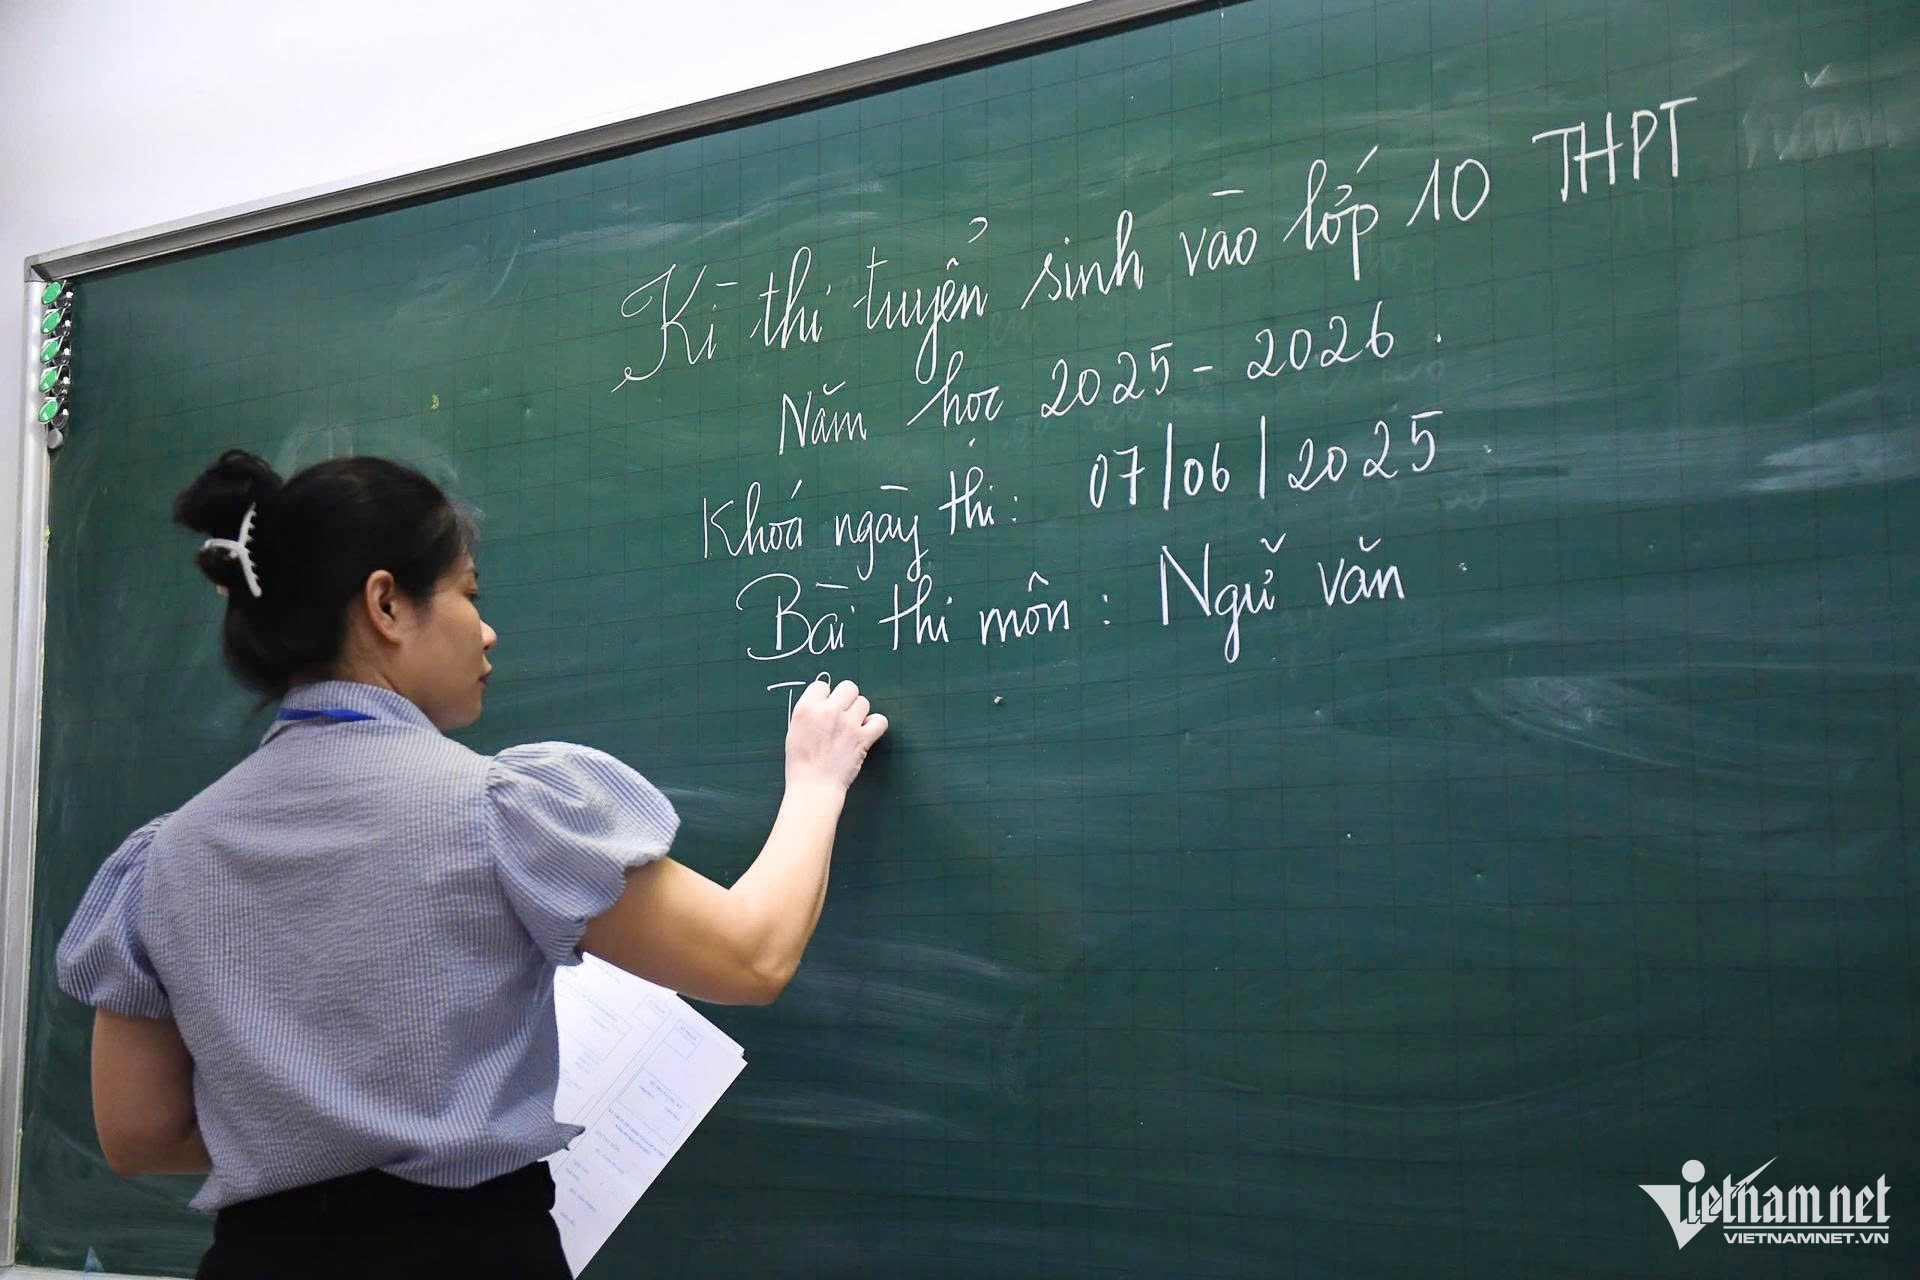 Kì thi tuyển sinh vào lớp 10 THPT năm
Năm học 2025 - 2026.
Khoá ngày thi: 07/06/2025
Bài thi môn: Ngữ văn
Vietnamnet
VIETNAMNET.VN